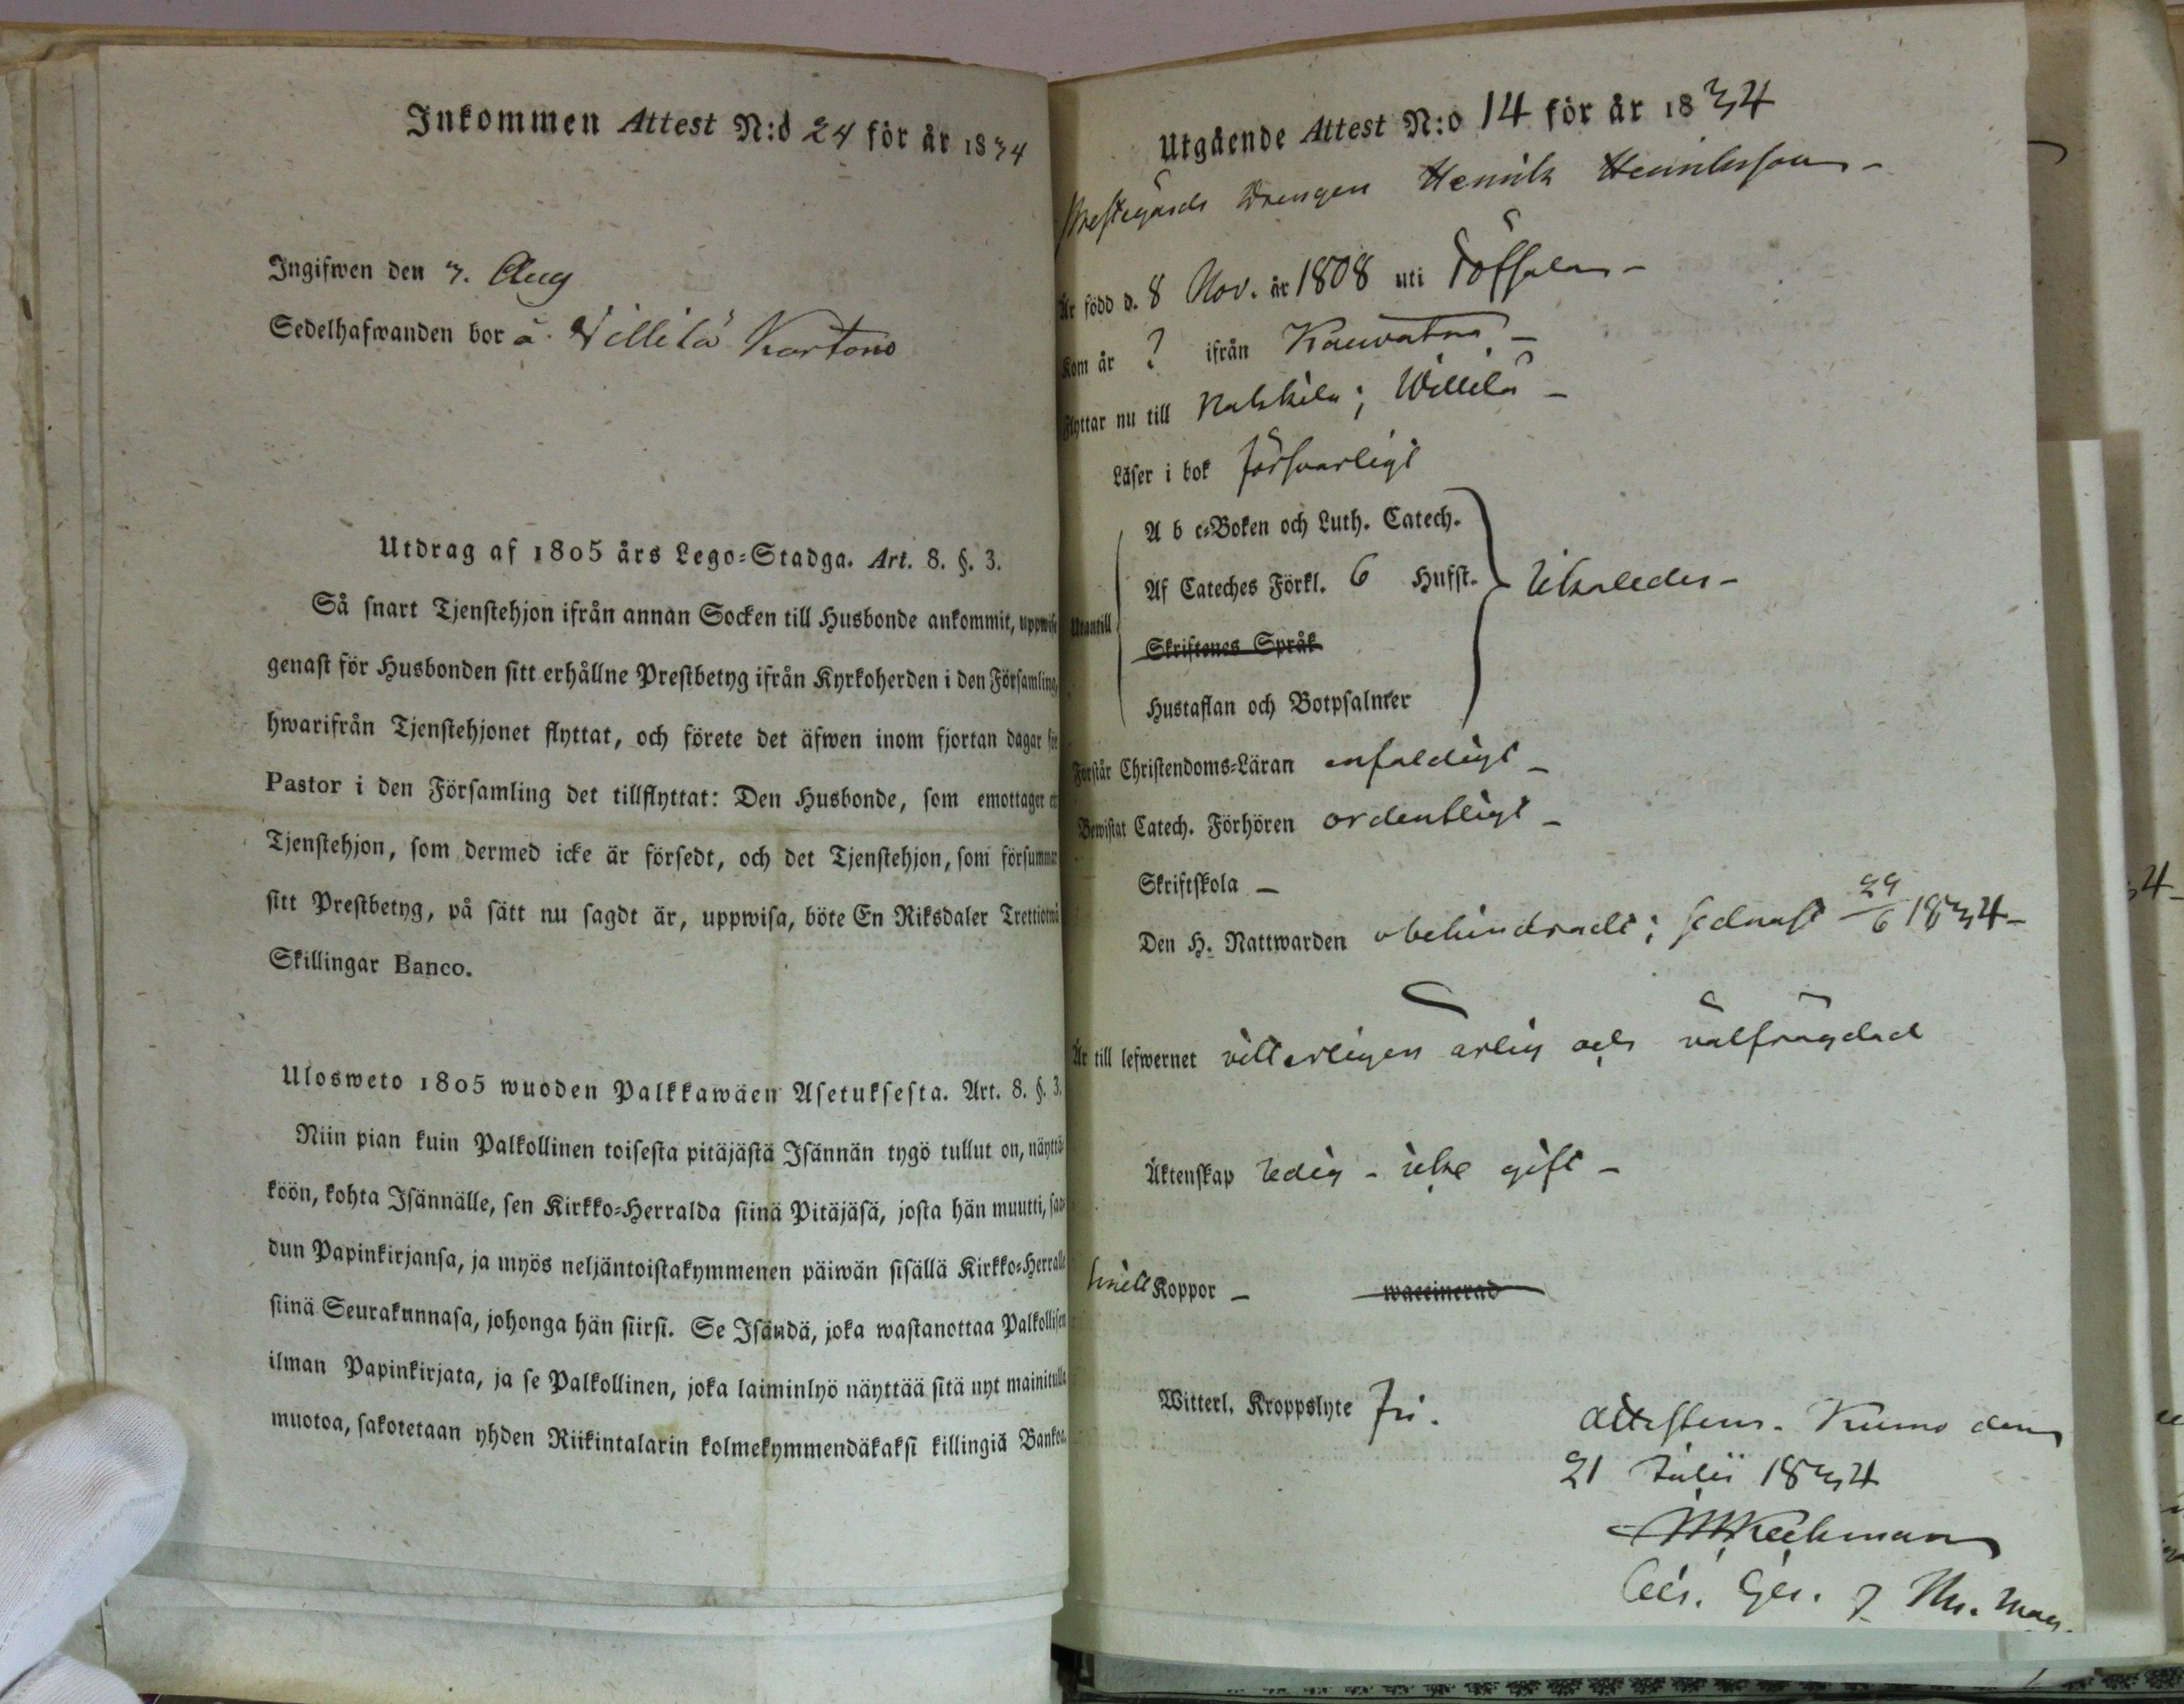 Inkommen Attest N:o 24 för år 1834
Ingifwen den 7. Aug
Sedelhafwanden bor å Villilä Kartano
Utdrag af 1805 års Lego-Stadga. Art. 8. §. 3.
Så snart Tjenstehjon ifrån annan Socken till Husbonde ankommit, uppwise
genast för Husbonden sitt erhållne Prestbetyg ifrån Kyrkoherden i den Församling,
hwarifrån Tjenstehjonet flyttat, och förete det äfwen inom fjortan dagar för
Pastor i den Församling det tillflyttat: Den Husbonde, som emottager ett
Tjenstehjon, som dermed icke är försedt, och det Tjenstehjon, som försummar
sitt Prestbetyg, på sätt nu sagdt är, uppwisa, böte En Riksdaler Trettiotwå
Skillingar Banco.
Ulosweto 1805 wuoden Palkkawäen Asetuksesta. Art. 8. §. 3.
Niin pian kuin Palkollinen toisesta pitäjästä Isännän tygö tullut on, näyttä-
köön, kohta Isännälle, sen Kirkko-Herralda siinä Pitäjäsä, josta hän muutti, saa-
dun Papinkirjansa, ja myös neljäntoistakymmenen päiwän sisällä Kirkko-Herralle
siinä Seurakunnasa, johonga hän siirsi. Se Isändä, joka wastanottaa Palkollisen
ilman Papinkirjata, ja se Palkollinen, joka laiminlyö näyttää sitä nyt mainitulla
muotoa, sakotetaan yhden Riikintalarin kolmekymmendäkaksi killingiä Bankoa.
Utgående Attest N:o 14 för år 1834
Prestegårds Drengen Henrik Henriksson -
Är född d. 8 Nov. år 1808 uti Töfsala -
Kom år ? ifrån Kauvatsa -
Flyttar nu till Nakkila; Willilä -
Läser i bok försvarligt
A b c-Boken och Luth. Catech.
Utantill Af Cateches Förkl. 6 Hufst.
Skriftenes Språk
Hustaflan och Botpsalmer
Förstår Christendoms-Läran enfaldigt -
Bewistat Catech. Förhören ordentligt -
Skriftskola -
Den H. Nattwarden obehindradt; sednast 29/6 1834 -
Är till lefwernet vitterligen ärlig och välfrägdad
Äktenskap ledig - icke gift -
Koppor - waccinerad
Witterl. Kroppslyte fri.
Attesteras. Kumo den
21 Julii 1834